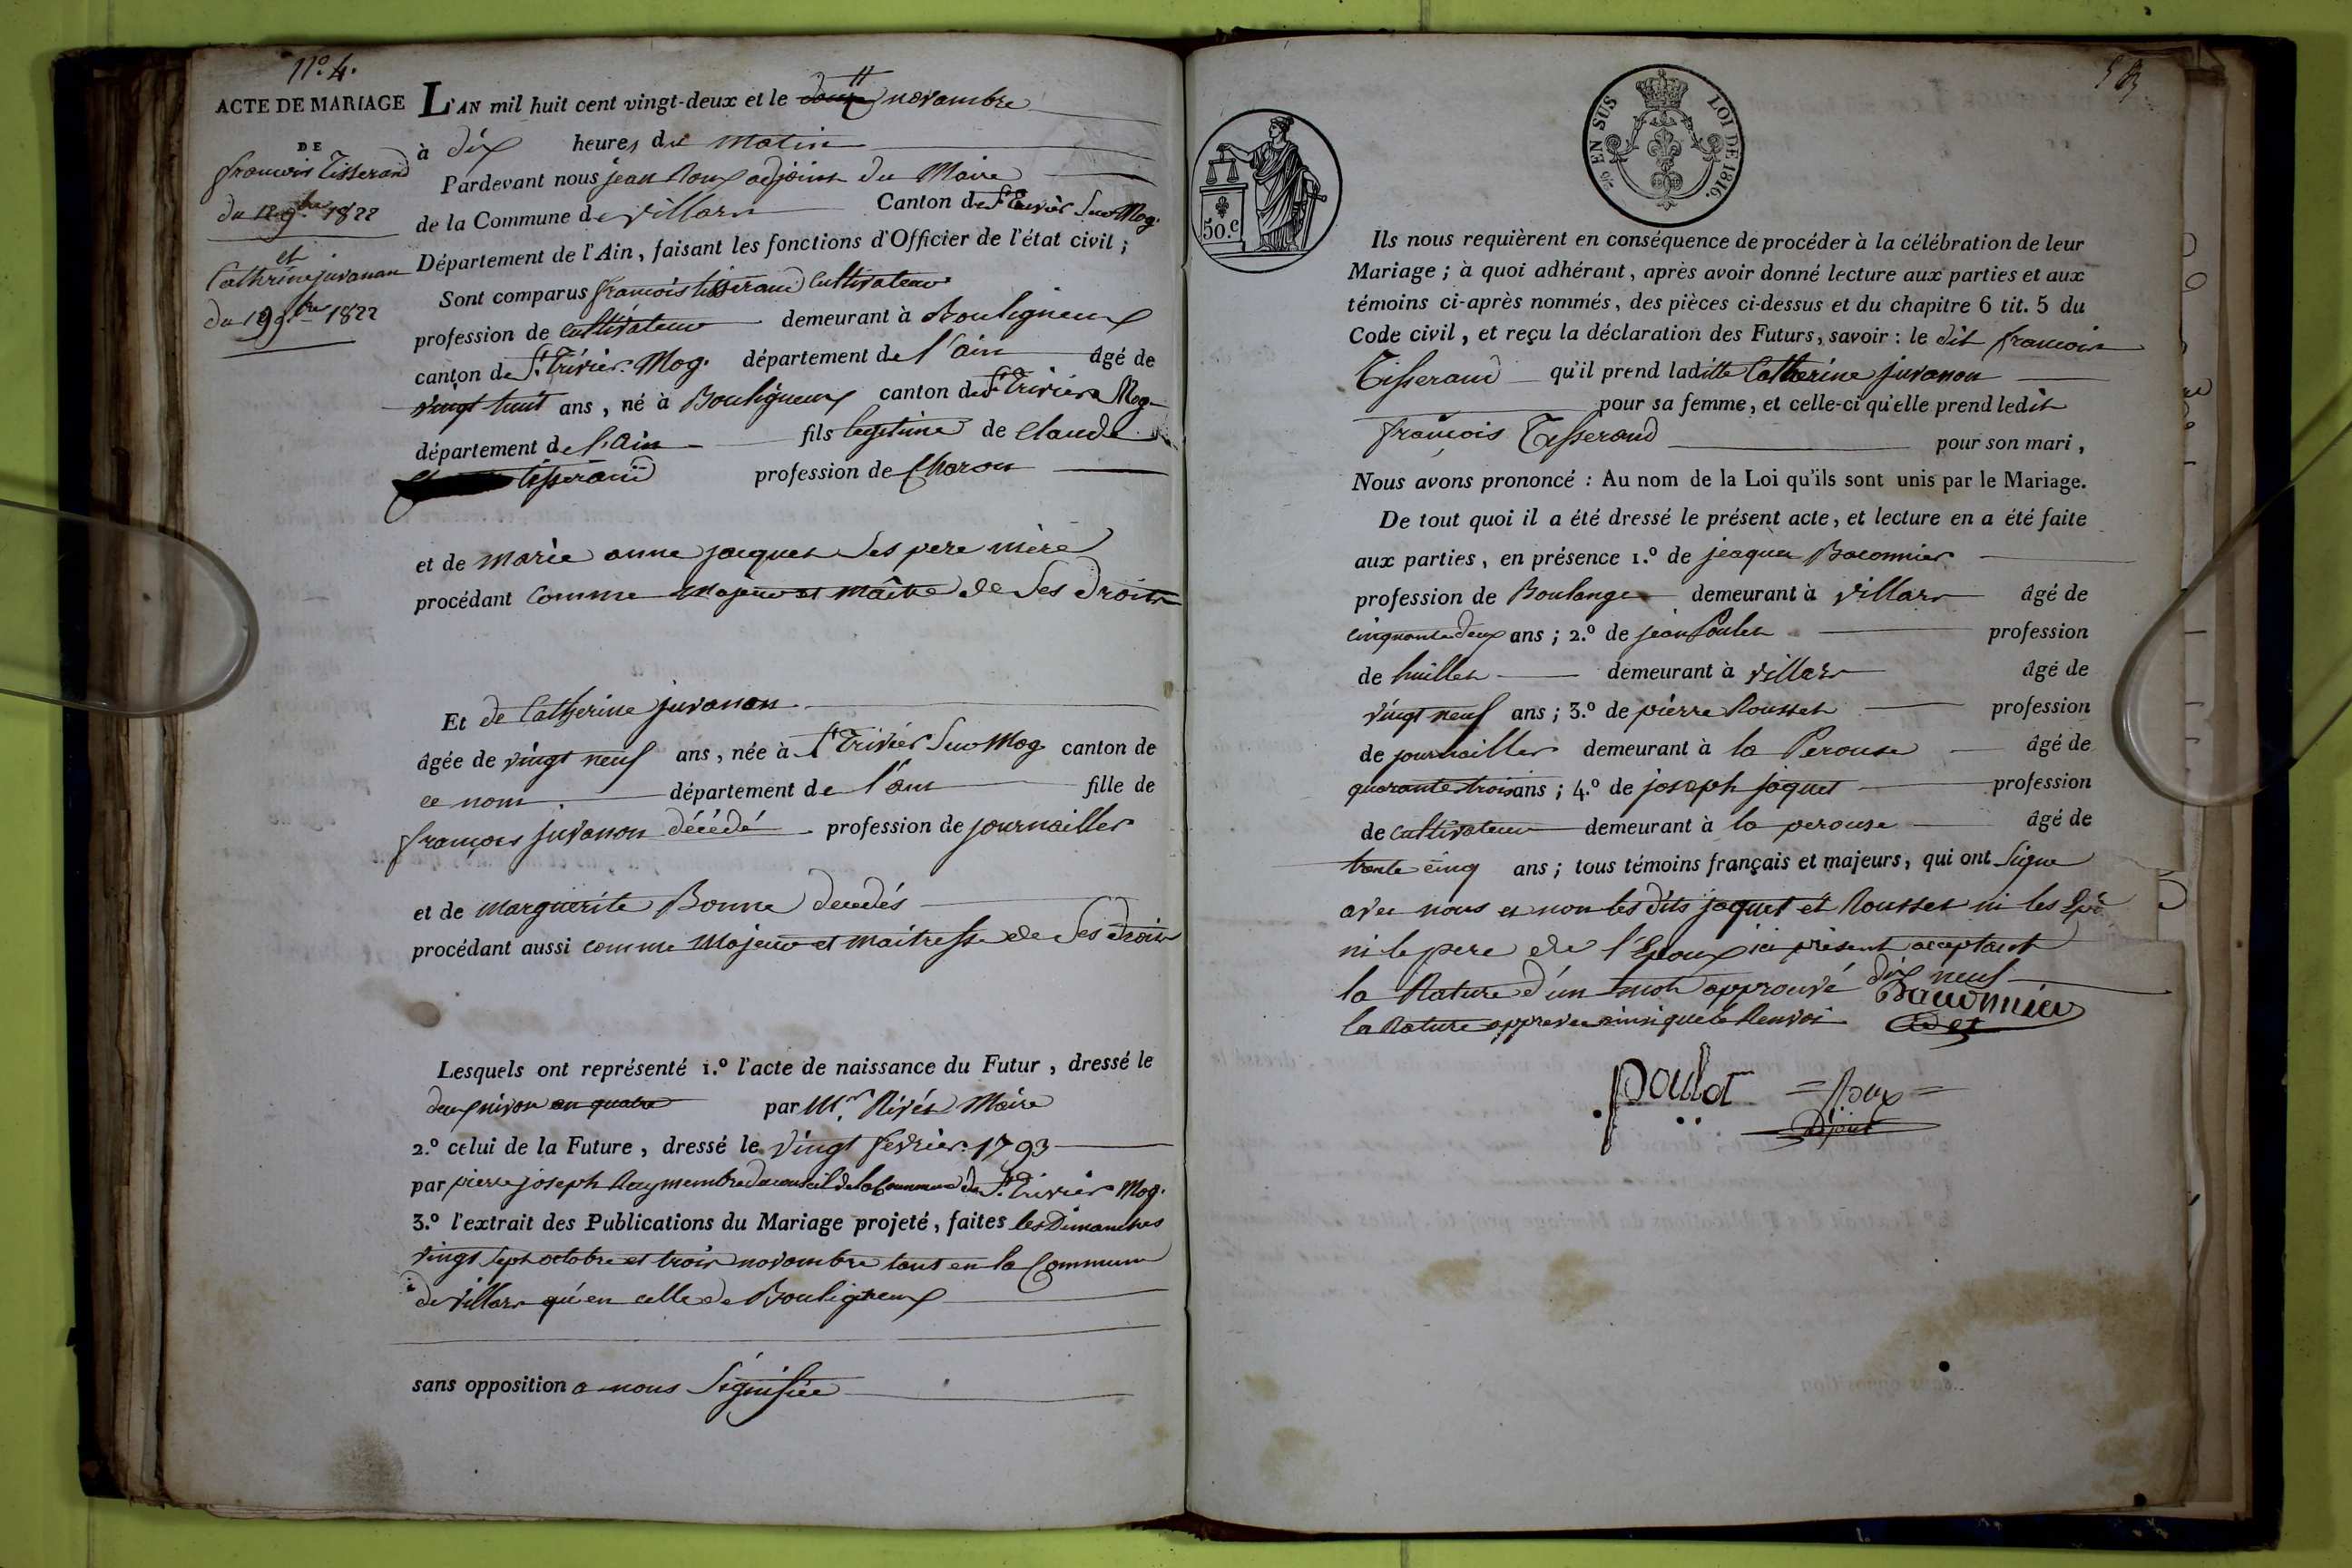 N.° 4.
ACTE DE MARIAGE
DE
francois Tisserand
du 9bre 1822
et
Catherine juvanon
du 9bre 1822
L'AN mil huit cent vingt-deux et le novambre
à dix heures du matin
Pardevant nous jean Roux adjoint du Maire
de la Commune de villars Canton de St Trivier Sur Mog.
Département de l'Ain, faisant les fonctions d'Officier de l'état civil ;
Sont comparus francois tisserand Cultivateur
profession de cultivateur demeurant à Bouligneux
canton de St. Trivier. Mog. département de l'ain âgé de
vingt huit ans, né à Bouligneux canton de St Trivier Mog.
département de l'Ain fils legitime de claude
tisserand profession de Charon
et de marie anne jacques ses pere mère
procédant comme majeur et maître de ses droits
Et de Catherine juvanon
âgée de vingt neuf ans, née à St Trivier Sur Mog canton de
ce nom département de l'ain fille de
françois juvanon décédé profession de journallier
et de marguerite Bonne decedés
procédant aussi comme majeur et maitresse de ses droits
Lesquels ont représenté 1.° l'acte de naissance du Futur, dressé le
deux nivose an quatre par Mr. Maire
2.° celui de la Future, dressé le vingt fevrier 1793
par pierre joseph Ray membre du conseil de la Commune de St. Trivier Mog.
3.° l'extrait des Publications du Mariage projeté, faites les Dimanches
vingt sept octobre et trois novambre tant en la Commune
de villars qu'en celle de Bouligneux
sans opposition a nous signifiée
50.c
EN SUS
LOI DE 1816.
Ils nous requièrent en conséquence de procéder à la célébration de leur
Mariage ; à quoi adhérant, après avoir donné lecture aux parties et aux
témoins ci-après nommés, des pièces ci-dessus et du chapitre 6 tit. 5 du
Code civil, et reçu la déclaration des Futurs, savoir : le dit francois
Tisserand qu'il prend laditte Catherine juvanon
pour sa femme, et celle-ci qu'elle prend ledit
françois Tisserand pour son mari,
Nous avons prononcé : Au nom de la Loi qu'ils sont unis par le Mariage.
De tout quoi il a été dressé le présent acte, et lecture en a été faite
aux parties, en présence 1.° de jeaques Baconnier
profession de Boulanger demeurant à villars âgé de
cinquante deux ans ; 2.° de jean Poulet profession
de huillier demeurant à villars âgé de
vingt neuf ans ; 3.° de pierre Rousset profession
de journallier demeurant à la Perouse âgé de
quarante trois ans ; 4.° de joseph jaquet profession
de cultivateur demeurant à la perouse âgé de
trente cinq ans ; tous témoins français et majeurs, qui ont signe
avec nous et non les dits jaquet et Rousset ni les
ni le pere de l'Epoux ici présent acceptant
la Rature d'un mot approuvé dix neuf
la Rature approuvee ainsi que le Renvoi
Baconnier
poulat
Roux
adjoint